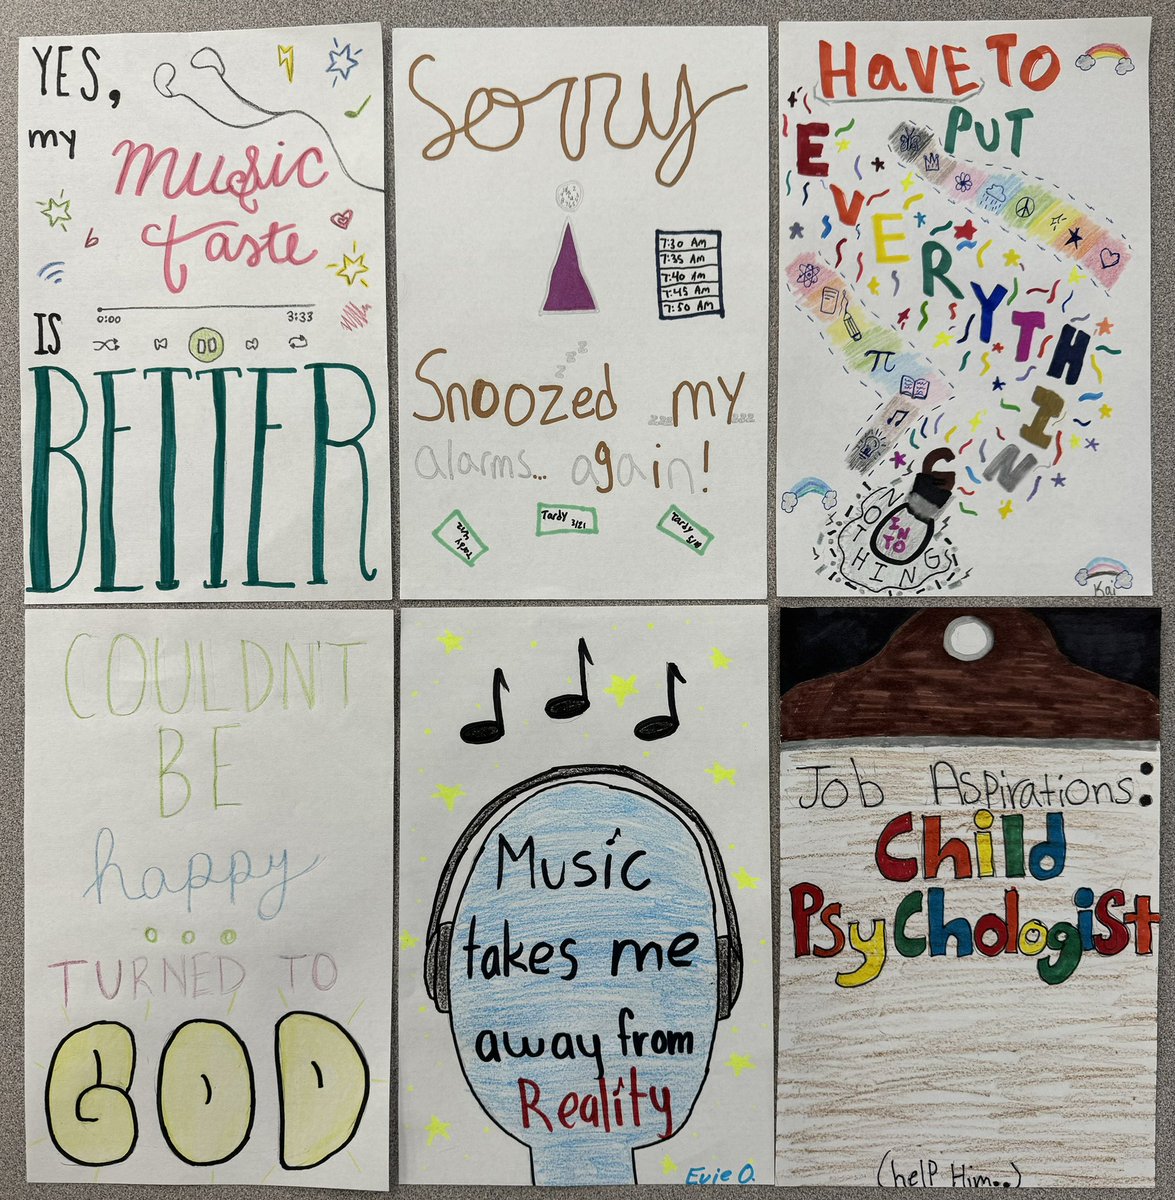 YES,
my
music
taste
IS
0:00 3:33
BETTER
Sorry
7:30 Am
7:35 Am
7:40 Am
7:45 Am
7:50 Am
zzz
Snoozed my
zzz zzz
alarms... again!
Tardy
Tardy 3/21
Tardy
HaVE TO
PUT
EVERYTHING
π
INTO
NOTHINGS
Kai
COULDN'T
BE
happy
...
TURNED TO
GOD
Music
takes me
away from
Reality
Evie O.
Job Aspirations:
Child
PsyChologist
(help Him..)